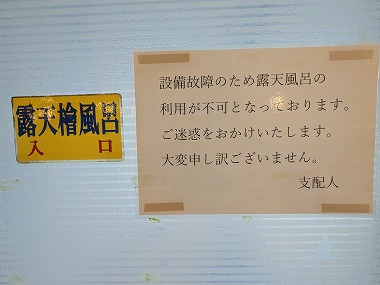 露天檜風呂
入口
設備故障のため露天風呂の
利用が不可となっております。
ご迷惑をおかけいたします。
大変申し訳ございません。
支配人